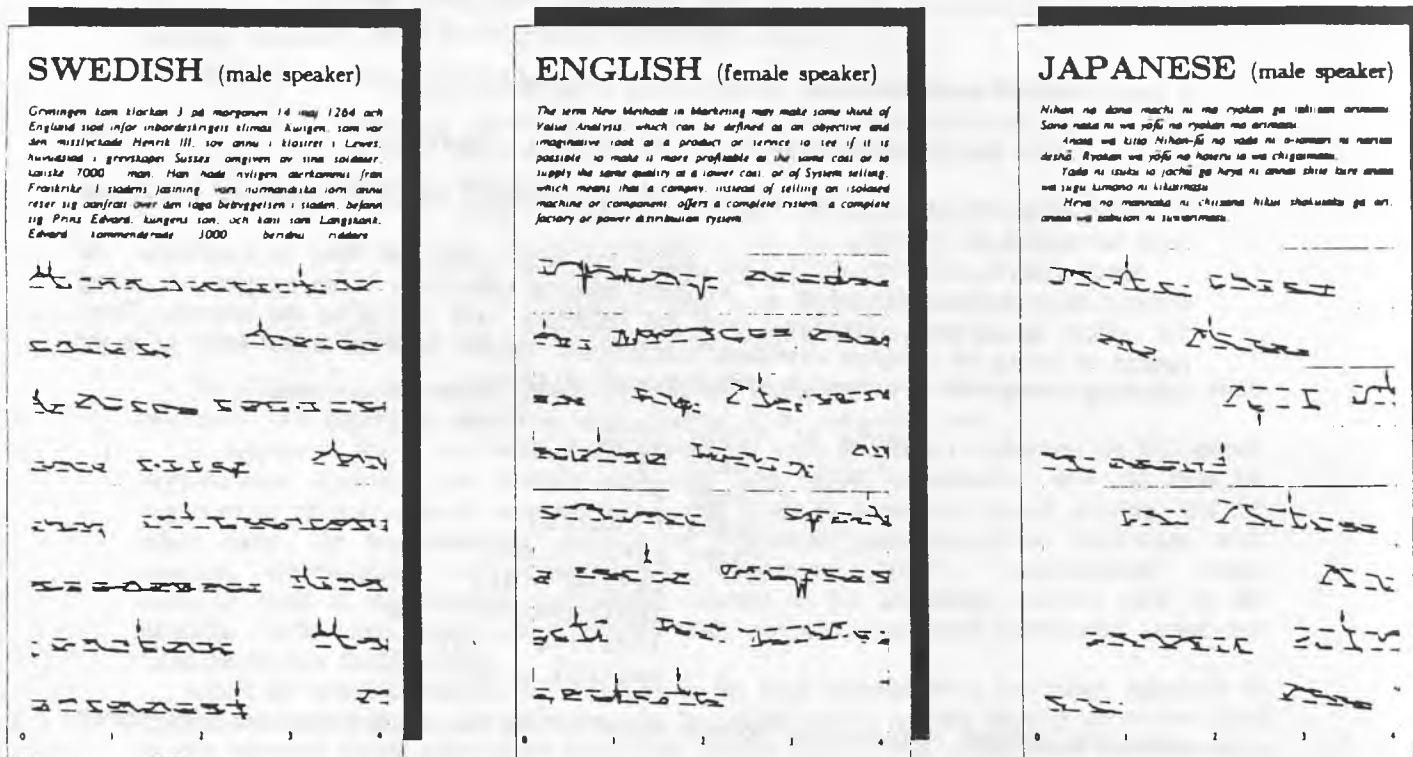 SWEDISH (male speaker)
Gryningen kom klockan 3 på morgonen 14 maj 1264 och
England stod inför inbördeskrigets klimax. Kungen, som var
den misslyckade Henrik III, sov ännu i klostret i Lewes,
i grevskapet Sussex omgiven av sina soldater,
kanske 7000 man. Han hade nyligen återkommit från
Frankrike. I stadens fästning, vars normandiska torn ännu
reser sig oanfrätt över den låga bebyggelsen i staden, befann
sig Prins Edvard, kungens son, och känd som Långskank.
Edvard kommenderade 3000 beridna riddare.
0 1 2 3 4
ENGLISH (female speaker)
The term New Methods in Marketing may make some think of
Value Analysis, which can be defined as an objective and
imaginative look at a product or service to see if it is
possible to make it more profitable at the same cost or to
supply the same quality at a lower cost, or of System selling,
which means that a compny, instead of selling an isolated
machine or component, offers a complete system, a complete
factory or power distribution system.
0 1 2 3 4
JAPANESE (male speaker)
Nihon no dono machi ni mo ryokan ga arimasu.
Sono naka ni wa yōfū no ryokan mo arimasu.
Anata wa kitto Nihon-fū no yado ni o-tomari ni naritai
deshō. Ryokan wa yōfū no hoteru to wa chigaimasu.
Yado ni tsuku to jochū ga heya ni annai shite kure anata
wa sugu kimono ni kikaimasu.
Heya no mannaka ni chiisana hikui shokutaku ga ari,
anata wa zabuton ni suwarimasu.
0 1 2 3 4